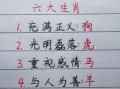 六大生肖
1.充满正义:狗
2.光明磊落:虎
3.重视感情:马
4.与人为善:羊